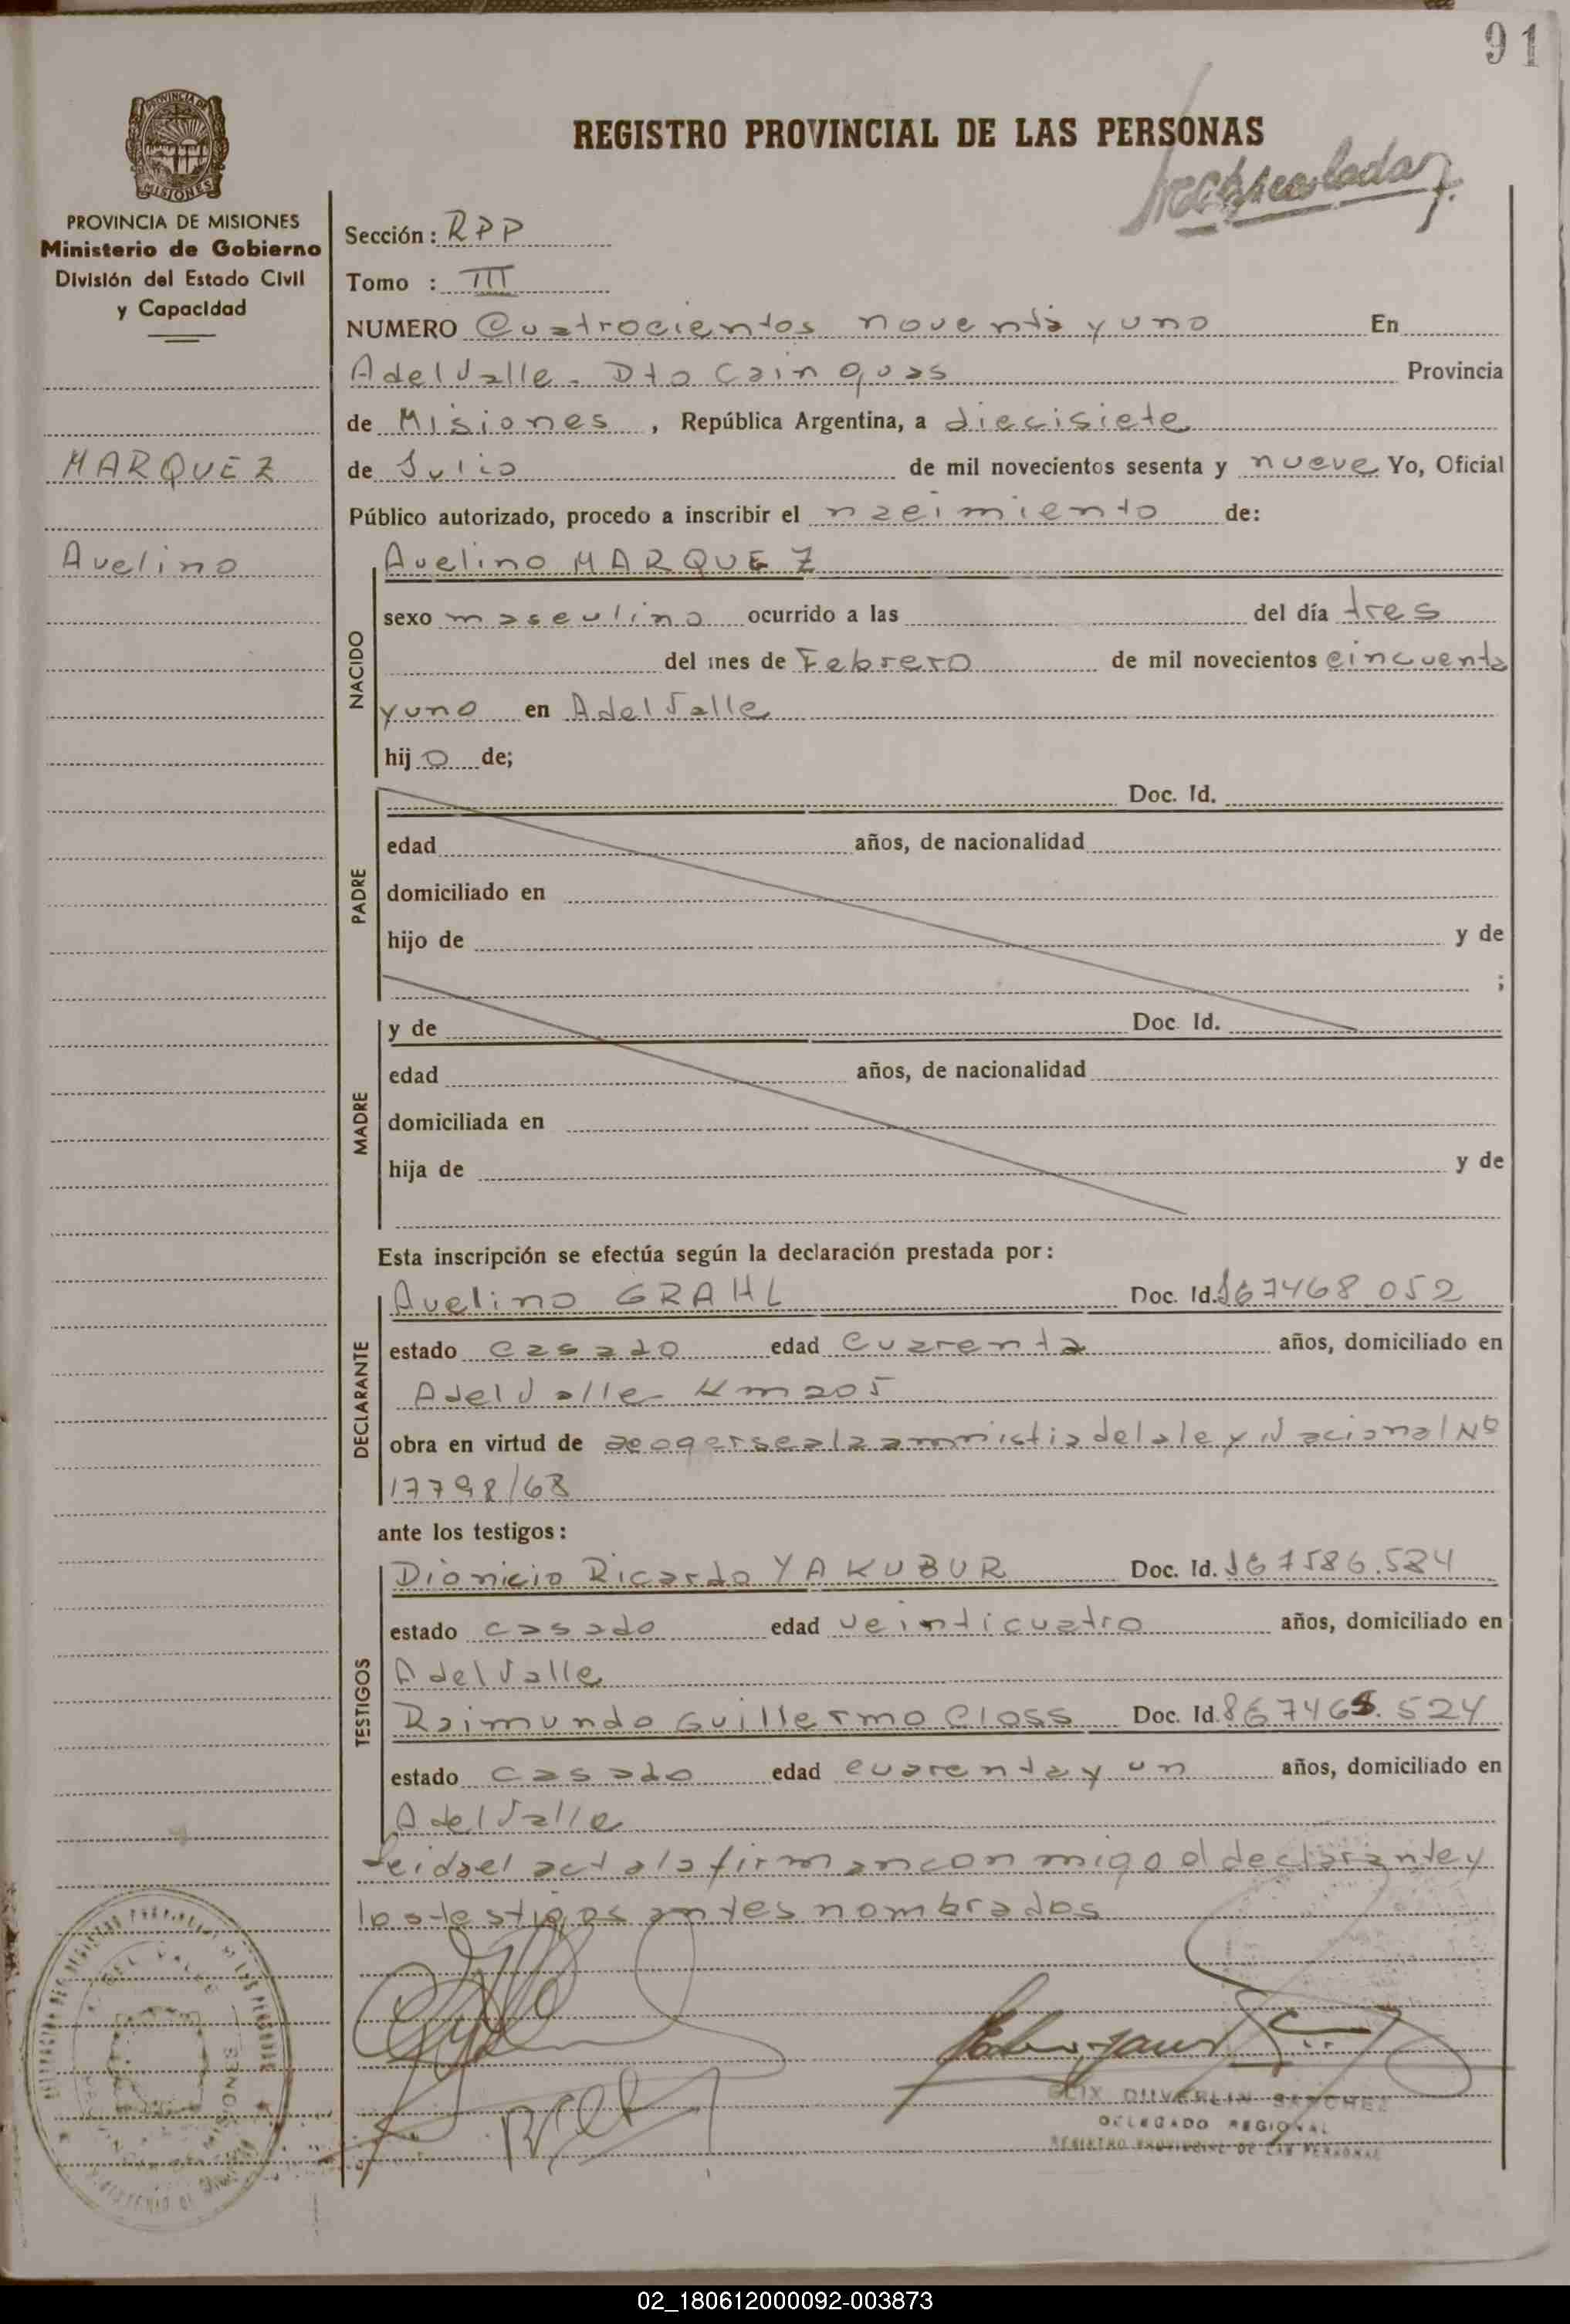 91
REGISTRO PROVINCIAL DE LAS PERSONAS
PROVINCIA DE
MISIONES
PROVINCIA DE MISIONES
Ministerio de Gobierno
División del Estado Civil
y Capacidad
MARQUEZ
Avelino
Sección: RPP
Tomo : III
NUMERO Cuatrocientos noventa y uno En
A del Valle - Dto Cainguas Provincia
de Misiones, República Argentina, a diecisiete
de Julio de mil novecientos sesenta y nueve Yo, Oficial
Público autorizado, procedo a inscribir el nacimiento de:
NACIDO
Avelino MARQUEZ
sexo masculino ocurrido a las del día tres
del mes de Febrero de mil novecientos cincuenta
y uno en A del Valle
hijo de;
PADRE
Doc. Id.
edad años, de nacionalidad
domiciliado en
hijo de y de
;
MADRE
y de Doc. Id.
edad años, de nacionalidad
domiciliada en
hija de y de
Esta inscripción se efectúa según la declaración prestada por:
DECLARANTE
Avelino GRAHL Doc. Id.
estado casado edad cuarenta años, domiciliado en
A del Valle Km 205
obra en virtud de acogerse a la amnistia de la ley Nacional Nº
17798/68
ante los testigos:
TESTIGOS
Dionicio Ricardo YAKUBUR Doc. Id.
estado casado edad veinticuatro años, domiciliado en
A del Valle
Raimundo Guillermo Closs Doc. Id.
estado casado edad cuarenta y un años, domiciliado en
A del Valle
Leida el acta la firman conmigo el declarante y
los testigos antes nombrados
DELEGADO REGIONAL
REGISTRO PROVINCIAL DE LAS PERSONAS
02_180612000092-003873